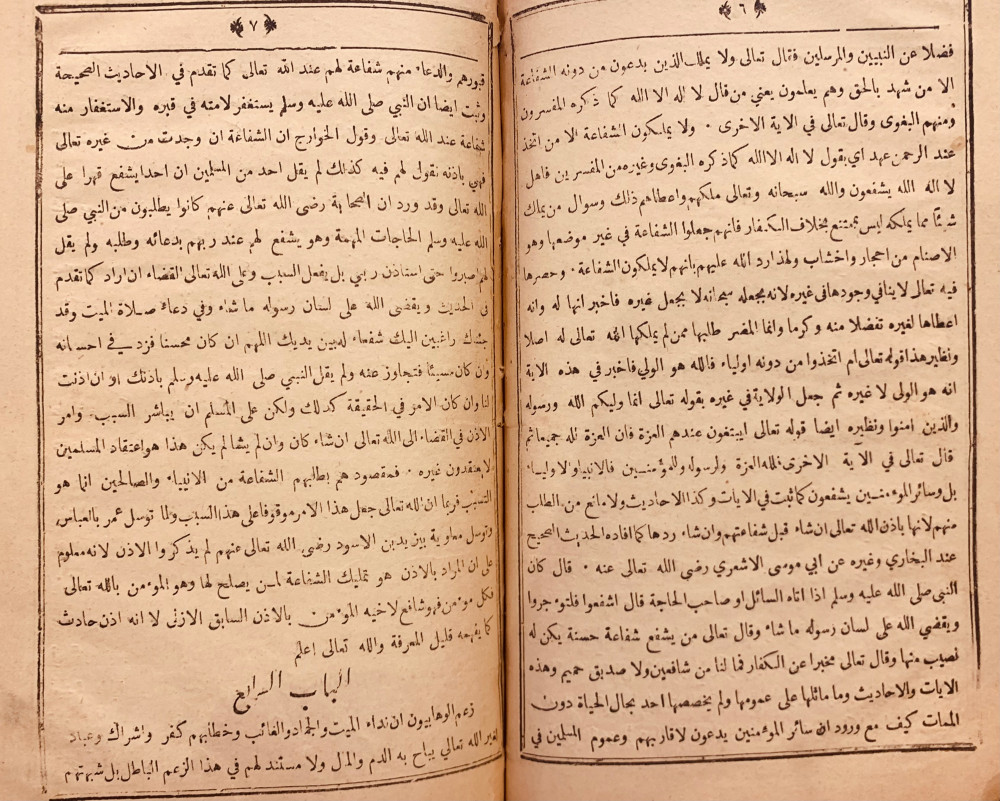 ٦
فضلا عن النبيين والمرسلين فقال تعالى ولا يملك الذين يدعون من دونه الشفاعة
الا من شهد بالحق وهم يعلمون يعني من قال لا اله الا الله كما ذكره المفسرون
ومنهم البغوى وقال تعالى في الاية الاخرى ٠ ولا يملكون الشفاعة الا من اتخذ
عند الرحمن عهد اي بقول لا اله الا الله كما ذكره البغوى وغيره من المفسرين فاهل
لا اله الله يشفعون والله سبحانه وتعالى ملكهم واعطاهم ذلك وسوال من يملك
شيئا مما يملكه ليس بممتنع بخلاف الكفار فانهم جعلوا الشفاعة في غير موضعها وهو
الاصنام من احجار واخشاب ولهذا رد الله عليهم بانهم لا يملكون الشفاعة ٠ وحصرها
فيه تعالى لا ينافي وجودها في غيره لانه بجعله سبحانه لا بجعل غيره فاخبر انها له وانه
اعطاها لغيره تفضلا منه وكرما وانما المضر طلبها ممن لم يملكها الله تعالى له اصلا
ونظير هذا قوله تعالى ام اتخذوا من دونه اولياء فالله هو الولي فاخبر في هذه الاية
انه هو الولى لا غيره ثم جعل الولاية في غيره بقوله تعالى انما وليكم الله ورسوله
والذين امنوا ونظيره ايضا قوله تعالى ايبتغون عندهم العزة فان العزة لله جميعا ثم
قال تعالى في الاية الاخرى ولله العزة ولرسوله وللمؤمنين فالانبياء والاولياء
بل وسائر المؤمنين يشفعون كما ثبت في الايات وكذا الاحاديث ولا مانع من الطلب
منهم لانها باذن الله تعالى ان شاء قبل شفاعتهم وان شاء ردها كما افاده الحديث الصحيح
عند البخاري وغيره عن ابي موسى الاشعري رضى الله تعالى عنه ٠ قال كان
النبي صلى الله عليه وسلم اذا اتاه السائل او صاحب الحاجة قال اشفعوا فلتوءجروا
ويقضي الله على لسان رسوله ما شاء وقال تعالى من يشفع شفاعة حسنة يكن له
نصيب منها وقال تعالى مخبرا عن الكفار فما لنا من شافعين ولا صديق حميم وهذه
الايات والاحاديث وما ماثلها على عمومها ولم يخصصها احد بحال الحياة دون
الممات كيف مع ورود ان سائر المؤمنين يدعون لاقاربهم وعموم المسلمين في
٧
قبورهم والدعاء منهم شفاعة لهم عند الله تعالى كما تقدم في الاحاديث الصحيحة
وثبت ايضا ان النبي صلى الله عليه وسلم يستغفر لامته في قبره والاستغفار منه
شفاعة عند الله تعالى وقول الخوارج ان الشفاغة ان وجدت من غيره تعالى
فهي باذنه نقول لهم فيه كذلك لم يقل احد من المسلمين ان احدا يشفع قهرا على
الله تعالى وقد ورد ان الصحابة رضى الله تعالى عنهم كانوا يطلبون من النبي صلى
الله عليه وسلم الحاجات المهمة وهو يشفع لهم عند ربهم بدعائه وطلبه ولم يقل
لهم اصبروا حتى استاذن ربي بل يفعل السبب وعلى الله تعالى القضاء ان اراد كما تقدم
في الحديث ويقضى الله على لسان رسوله ما شاء وفي دعاء صلاة الميت وقد
جئناك راغبين اليك شفعاء له بين يديك اللهم ان كان محسنا فزد في احسانه
وان كان مسيئا فتجاوز عنه ولم يقل النبي صلى الله عليه وسلم باذنك او ان اذنت
لنا وان كان الامر في الحقيقة كذلك ولكن على المسلم ان يباشر السبب وامر
الاذن في القضاء الى الله تعالى ان شاء كان وان لم يشا لم يكن هذا هو اعتقاد المسلمين
لا يعتقدون غيره ٠ فمقصودهم بطلبهم الشفاعة من الانبياء والصالحين انما هو
التسبب فربما ان الله تعالى جعل هذا الامر موقوفا على هذا السبب ولما توسل عمر بالعباس
وتوسل معاوية بيزيد بن الاسود رضى الله تعالى عنهم لم يذكروا الاذن لانه معلوم
على ان المراد بالاذن هو تمليك الشفاعة لمن يصلح لها وهو الموءمن بالله تعالى
فكل موءمن فهو شافع لاخيه الموءمن بالاذن السابق الازلى لا انه اذن حادث
كما يفهمه قليل المعرفة والله تعالى اعلم
الباب الرابع
زعم الوهابيون ان نداء الميت والجماد والغائب وخطابهم كفر واشراك وعبادة
لغير الله تعالي يباح به الدم والمال ولا مستند لهم في هذا الزعم الباطل بل شبهتهم